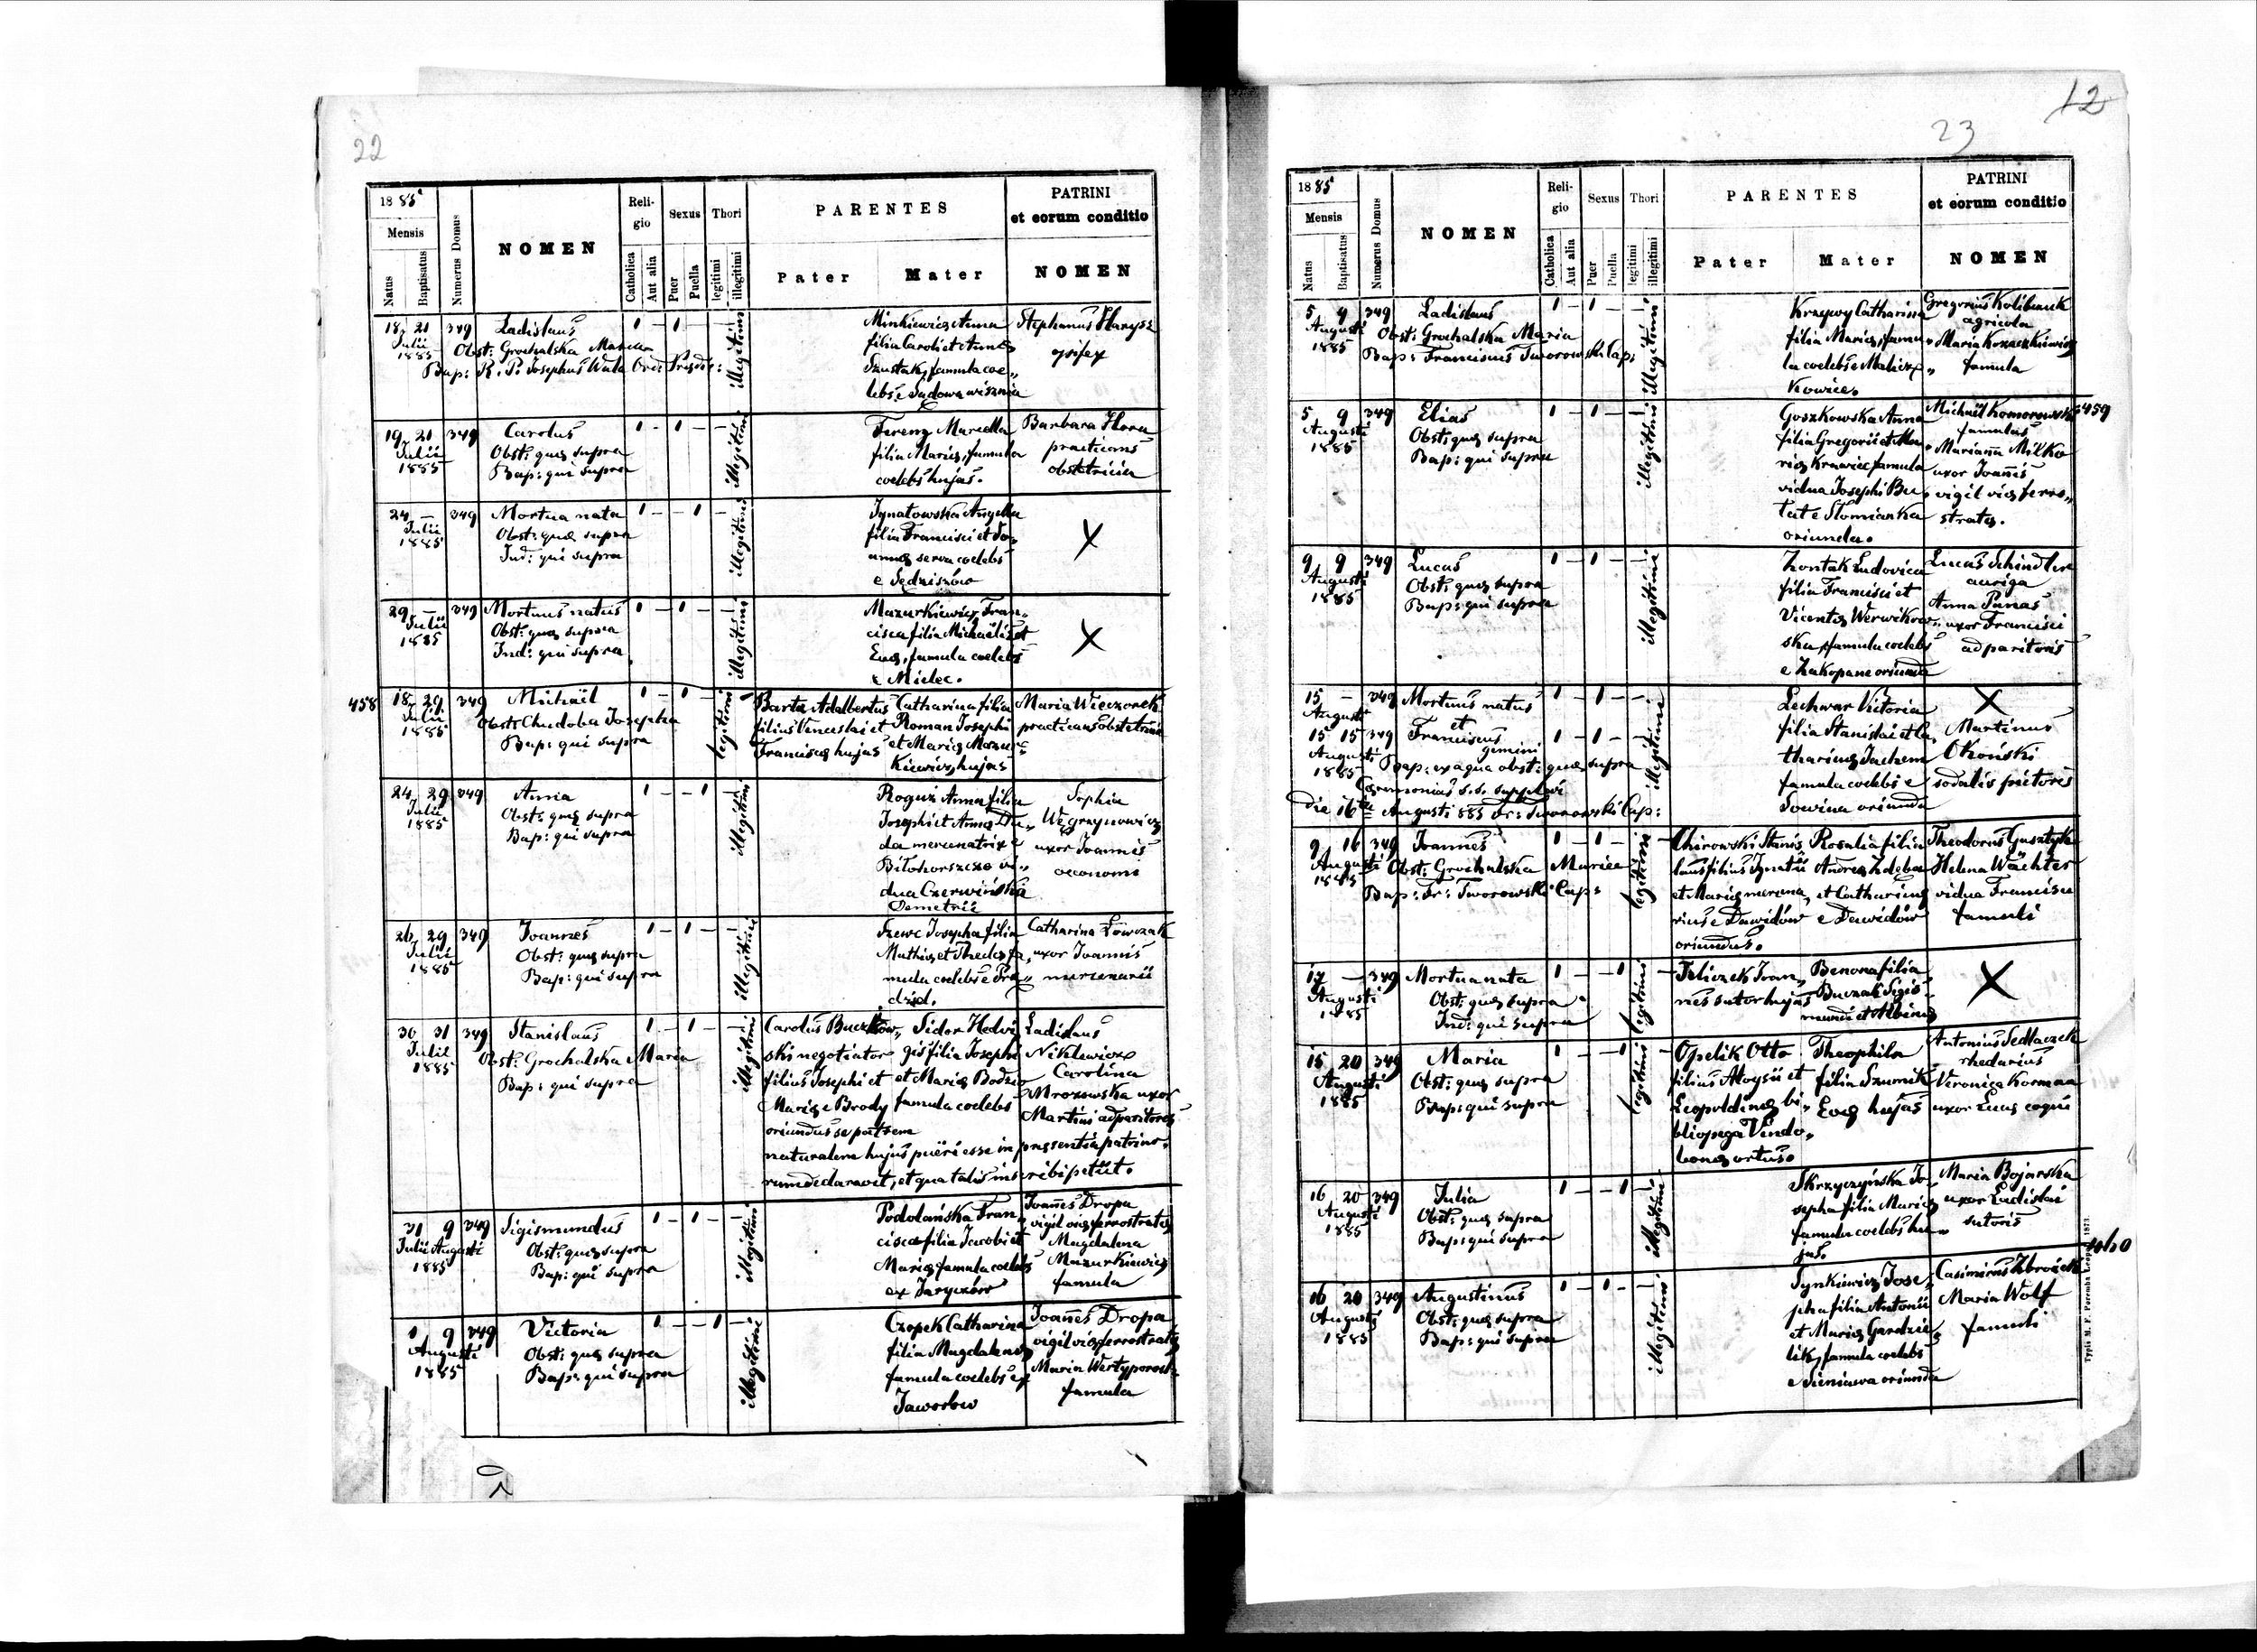 22
1885
Mensis
Natus
Baptisatus
Numerus Domus
NOMEN
Reli-
gio
Catholica
Aut alia
Sexus
Puer
Puella
Thori
legitimi
illegitimi
PARENTES
Pater
Mater
PATRINI
et eorum conditio
NOMEN
18 21 349 Ladislaus 1 - 1 - - illegitimi Minkiewicz Anna Stephanus
Julii Obst: Grochalska filia Caroli et Annae gypsifex
1885 Bap: R. P. Josephus famula coe„
lebs e Sadowa wisznia
19 21 349 Carolus 1 - 1 - - illegitimi Ferenz Marcella Barbara Flora
Julii Obst: quae supra filia Mariae, famula practicans
1885 Bap: qui supra coelebs hujas. obstetricia
24 - 349 Mortua nata 1 - - 1 - illegitimi Ignatowska Angella
Julii Obst: quae supra filia Francisci et Jo„
1885 Ind: qui supra annae serva coelebs
e Sędziszów
29 - 349 Mortuus natus 1 - 1 - - illegitimi Mazurkiewicz Fran„
Julii Obst: quae supra cisca filia Michaëlis et
1885 Ind: qui supra Evae, famula coelebs
e Mielec.
458 18 29 349 Michaël 1 - 1 - legitimi Barta Adalbertus Catharina filia Maria Wieczorek
Julii Obst: Chudoba Josepha filius Venceslai et Roman Josephi practicans obstetricia
1885 Bap: qui supra Franciscae hujas et Mariae Mazur„
kiewicz, hujas
24 29 349 Anna 1 - - 1 - illegitimi Anna filia Sophia
Julii Obst: quae supra Josephi et Annae Du„ Węgrzynowicz
1885 Bap: qui supra da mercenatrix e uxor Joannis
Biłohorszcze vi„ oeconomi
dua Czerwińska
Demetrii
26 29 349 Joannes 1 - 1 - - illegitimi Szewc Josepha filia Catharina Łowczak
Julii Obst: quae supra Mathiae et Theclae fa„ uxor Joannis
1885 Bap: qui supra mula coelebs e mercenarii
30 31 349 Stanislaus 1 - 1 - - illegitimi Carolus Buczkow„ Sidor Hedvi„ Ladislaus
Julii Obst: Grochalska Maria ski negotiator gis filia Josephi Niklewicz
1885 Bap: qui supra filius Josephi et et Mariae Carolina
Mariae e Brody famula coelebs Mrozowska uxor
oriundus se patrem Martini adparitoris
naturalem hujus pueri esse in praesentia patrino„
rum declaravit, et qua talis inscribi petiit.
31 9 349 Sigismundus 1 - 1 - - illegitimi Podolańska Fran„ Joannes Dropa
Julii Augusti Obst: quae supra cisca filia Jacobi et vigil viae ferrostratae
1885 Bap: qui supra Mariae famula coelebs Magdalena
ex Jaryczów Mazurkiewicz
famula
1 9 349 Victoria 1 - - 1 - illegitimi Czopek Catharina Joannes Dropa
Augusti Obst: quae supra filia Magdalenae vigil viae ferrostratae
1885 Bap: qui supra famula coelebs ex Maria
Jaworów famula
12
23
1885
Mensis
Natus
Baptisatus
Numerus Domus
NOMEN
Reli-
gio
Catholica
Aut alia
Sexus
Puer
Puella
Thori
legitimi
illegitimi
PARENTES
Pater
Mater
PATRINI
et eorum conditio
NOMEN
5 9 349 Ladislaus 1 - 1 - - illegitimi Krzywy Catharina Gregorius
Augusti Obst: Grochalska Maria filia Mariae, famu„ agricola
1885 Bap: Franciscus Tworowski Cap: la coelebs e Malecz„ Maria
kowice. famula
5 9 349 Elias 1 - 1 - - illegitimi Goszkowska Anna Michaël Komorowski 459
Augusti Obst: quae supra filia Gregorii et Ma„ famulus
1885 Bap: qui supra riae Krawiec famula Marianna Milko
vidua Josephi Bu„ uxor Joannis
tut e Słomianka vigil viae ferro„
oriunda. stratae.
9 9 349 Lucas 1 - 1 - - illegitimi Zontak Ludovica Lucas Schindler
Augusti Obst: quae supra filia Francisci et auriga
1885 Bap: qui supra Vicentae Anna Panas
ska, famula coelebs uxor Francisci
e Zakopane oriunda adparitoris
15 - 349 Mortuus natus 1 - 1 - - illegitimi Lechwar Victoria
Augusti et filia Stanislai et Ca„ Martinus
15 15 349 Franciscus 1 - 1 - tharinae Okoński
Augusti gemini famula coelebs e sodalis pictoris
1885 Bap: ex aqua obst: quae supra Sowina oriunda
Ceremonias s.s. supplevi
die 16ta Augusti 885 Fr: Tworowski Cap:
9 16 349 Joannes 1 - 1 - legitimi Chirowski Stanis„ Rosalia filia Theodorus
Augusti Obst: Grochalska Maria laus filius Ignatii Andreae Helena Wächter
1885 Bap: Fr: Tworowski Cap: et Mariae mercena„ et Catharinae vidua Francisca
rius e Dawidów e Dawidów famuli
oriundus.
17 - 349 Mortua nata 1 - - 1 legitimi Joan„ Benona filia
Augusti Obst: quae supra nes sutor hujas Buczak Sigis„
1885 Ind: qui supra mundi et Albinae
15 20 349 Maria 1 - - 1 legitimi Opelik Otto Theophila Antonius Sedlaczek
Augusti Obst: quae supra filius Aloysii et filia Szumik rhedarius
1885 Bap: qui supra Leopoldinae bi„ Evae hujas Veronica Korman
bliopega Vindo„ uxor Lucae coqui
bonae ortus.
16 20 349 Julia 1 - - 1 - illegitimi Skrzyczyńska Jo„ Maria Bojarska
Augusti Obst: quae supra sepha filia Mariae uxor Ladislai
1885 Bap: qui supra famula coelebs hu„ sutoris
jas.
460
16 20 349 Augustinus 1 - 1 - - illegitimi Synkiewicz Jose„ Casimirus Zbrożek
Augusti Obst: quae supra pha filia Antonii Maria Wolf
1885 Bap: qui supra et Mariae Gardzie„ famuli
lik, famula coelebs
e Sieniawa oriunda
Typis M. F. Poremba Leopoli 1873.